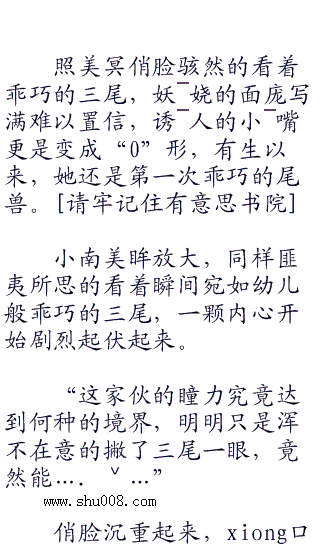 照美冥俏脸骇然的看着
乖巧的三尾，妖¯娆的面庞写
满难以置信，诱¯人的小¯嘴
更是变成“O”形，有生以
来，她还是第一次乖巧的尾
兽。[请牢记住有意思书院]
小南美眸放大，同样匪
夷所思的看着瞬间宛如幼儿
般乖巧的三尾，一颗内心开
始剧烈起伏起来。
“这家伙的瞳力究竟达
到何种的境界，明明只是浑
不在意的撇了三尾一眼，竟
然能…．ˇ…”
www.shu008.com
俏脸沉重起来，xiong口